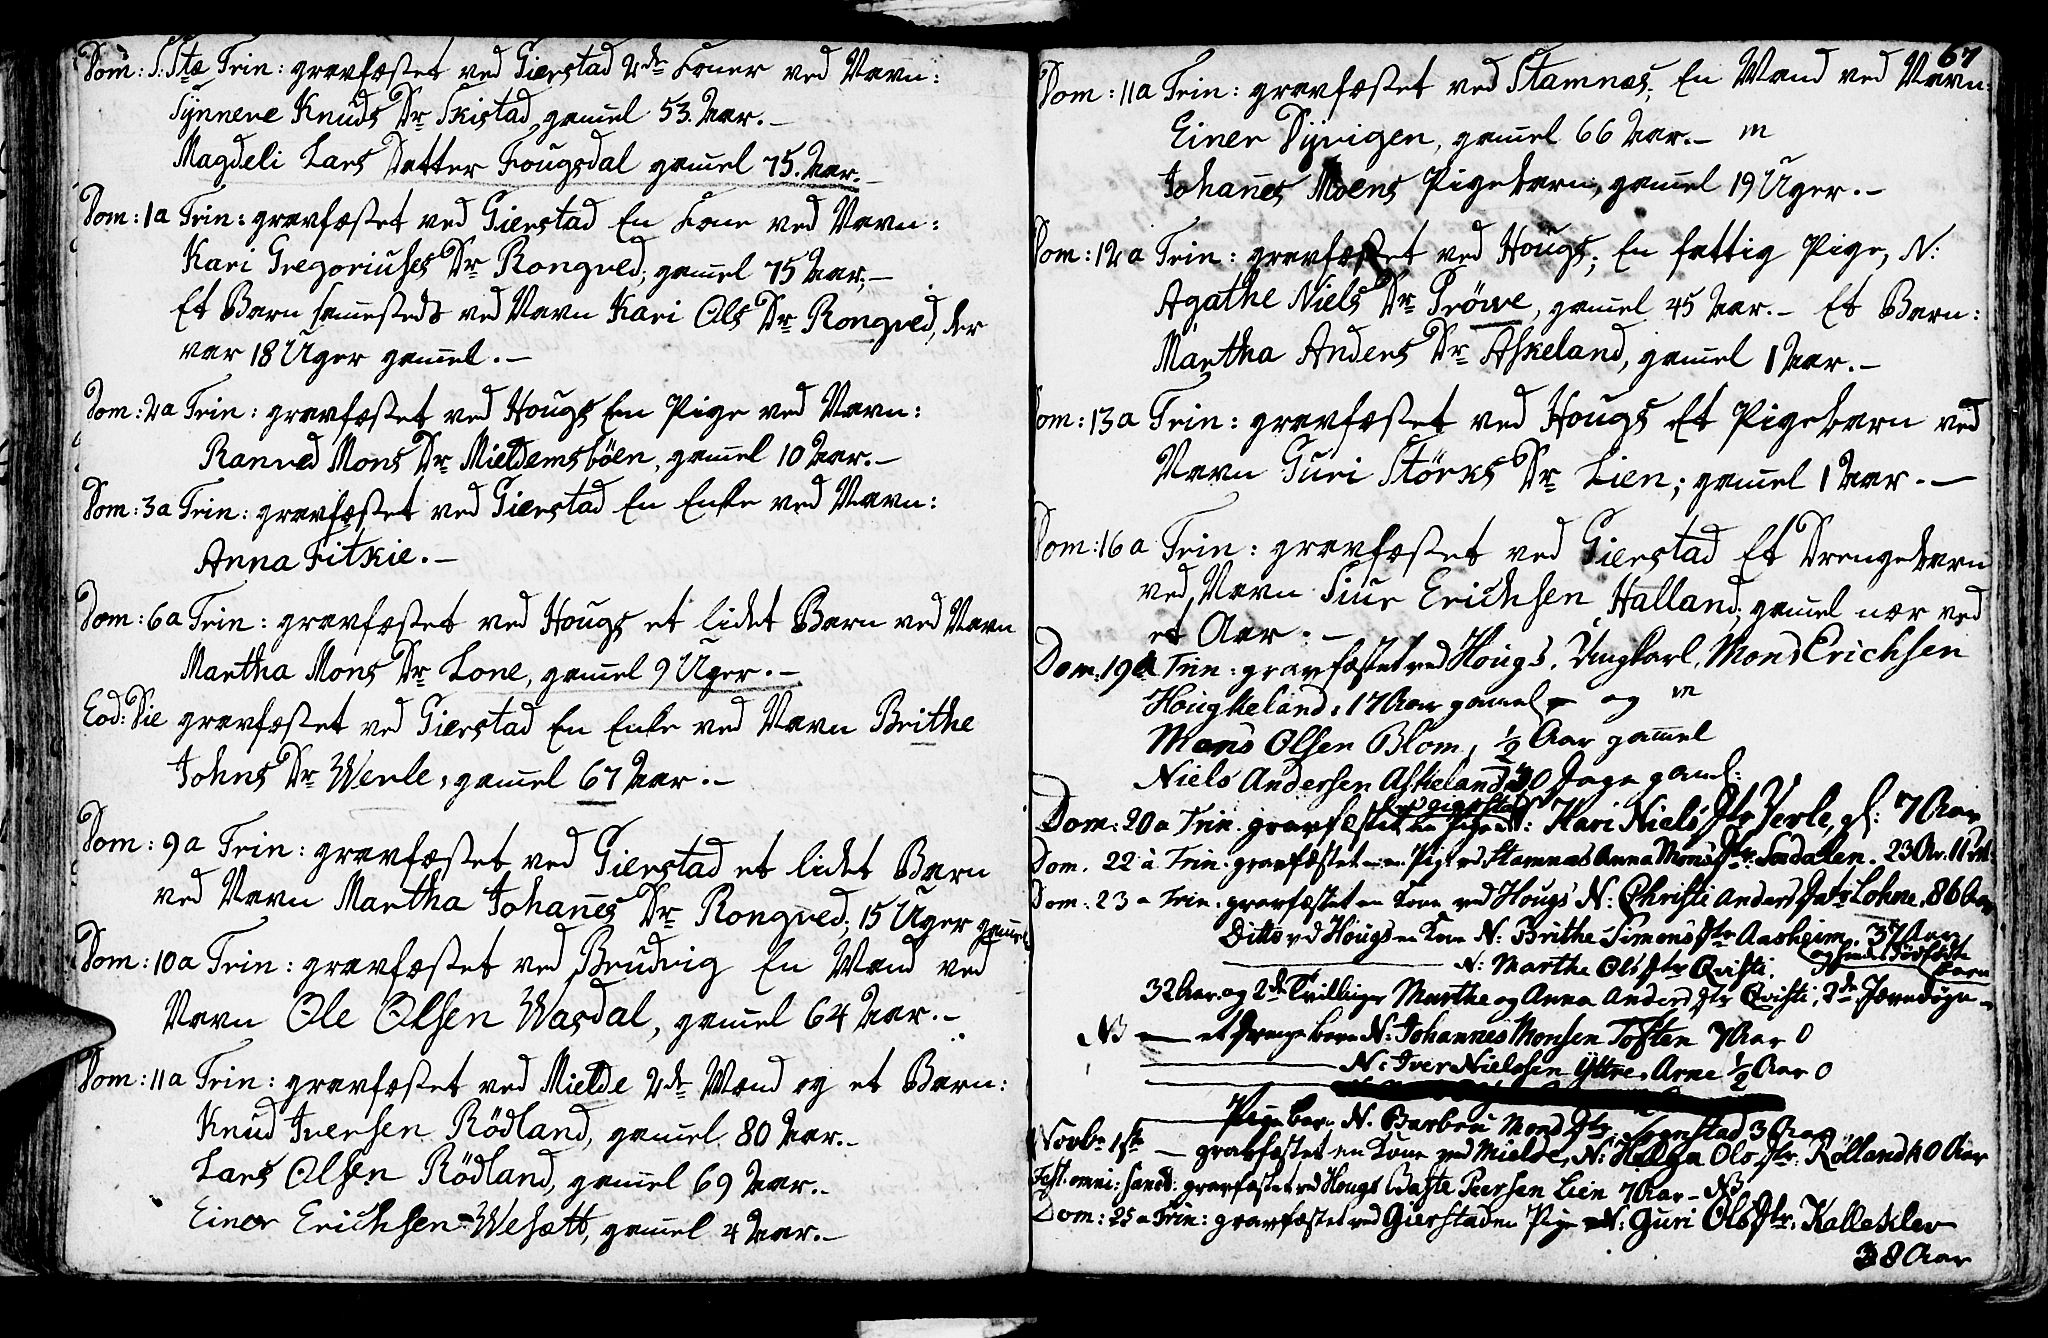 Dom: S: Stæ Trin: gravfæstet ved Gierstad 2de Koner ved Navn:
Synneve Knuds Dr Skistad, gamel 53. Aar.-
Magdeli Lars Datter Fougsdal gamel 75. Aar.-
Dom: 1 a Trin: gravfæstet ved Gierstad En Kone ved Navn:
Kari Gregoriuses Dr Rongved, gamel 75 Aar.-
Et Barn samesteds ved Navn Kari Ols Dr Rongved, der
var 18 Uger gamel.-
Dom: 2 a Trin: gravfæstet ved Hougs En Pige ved Navn:
Ranved Mons Dr Mieldemsböen, gamel 10 Aar.-
Dom: 3 a Trin: gravfæstet ved Gierstad En Enke ved Navn:
Anna Fitkie.-
Dom: 6 a Trin: gravfæstet ved Hougs et lidet Barn ved Navn
Martha Mons Dr Lone, gamel 9 Uger.-
Eod: Die gravfæstet ved Gierstad En Enke ved Navn Brithe
Johns Dr Werle, gamel 67 Aar.-
Dom: 9 a Trin: gravfæstet ved Gierstad et lidet Barn
ved Navn Martha Johanes Dr Rongved, 15 Uger gamel
Dom: 10 a Trin: gravfæstet ved Brudvig En Mand ved
Navn Ole Olsen Wasdal, gamel 64 Aar.-
Dom: 11 a Trin: gravfæstet ved Mielde 2de Mænd og et Barn:
Knud Iversen Rödland, gamel 80 Aar.-
Lars Olsen Rödland, gamel 69 Aar.-
Einer Erichsen Wesætt, gamel 4 Aar.-
67
Dom: 11 a Trin: gravfæstet ved Stamnæs, En Mand ved Navn:
Einer Dyvigen, gamel 66 Aar.-
Johanes Moens Pigebarn, gamel 19 Uger.-
Dom: 12 a Trin: gravfæstet ved Hougs, En fattig Pige, N:
Agathe Niels Dr Pröwe, gamel 45 Aar.- Et Barn:
Martha Anders Dr Askeland, gamel 1 Aar.-
Dom: 13 a Trin: gravfæstet ved Hougs Et Pigebarn ved
Navn Guri Störks Dr Lien; gamel 1 Aar.-
Dom: 16 a Trin: gravfæstet ved Gierstad Et Drengebarn
ved Navn Siur Erichsen Halland; gamel nær ved
et Aar.-
Dom: 19 a Trin: gravfæstet ved Hougs. Ungkarl, Mons Erichsen
Hougkeland, 17 Aar gamel og
Mons Olsen Blom, 1/2 Aar gammel
Niels Andersen Askeland 30 Dage gaml:
Dom: 20 a Trin. gravfæstet ved Gierstad en Pige N: Kari Niels Dtr Verle, gl: 7 Aar
Dom. 22 a Trin. gravfæstet en Pige ved Stamnæs Anna Mons Dtr Sædalen. 23 Ar. 11
Dom: 23 a Trin. gravfæstet en Kone ved Hougs N: Christi Anders Datr Lohne. 86 Aar
Ditto ved Hougs en Kone N: Brithe Simons Dtr Aasheim, 37 Aar
og hendes dødfødte Barn
N: Marthe Ols Dtr Qvisti.
32 Aar og 2de Tvillinger Marthe og Anna Anders Dtr Qvisti, 2de
NB et Drenge barn N: Johannes Monsen Toften 7 Aar 0
N: Iver Nielssen Yttre-Arne 1/2 Aar 0
Pige barn N. Barbra Mons Dtr 3 Aar
Novbr 1ste gravfæstet en Kone ved Mielde, N: Helga Ols Dtr. Rölland 40 Aar
Fest. omni: Sanct: gravfæstet ved Hougs Baste Peersen Lien 7 Aar - NB
Dom: 25 a Trin: gravfæstet ved Gierstad en Pige N: Guri Ols Dtr. Kalleklev
38 Aar